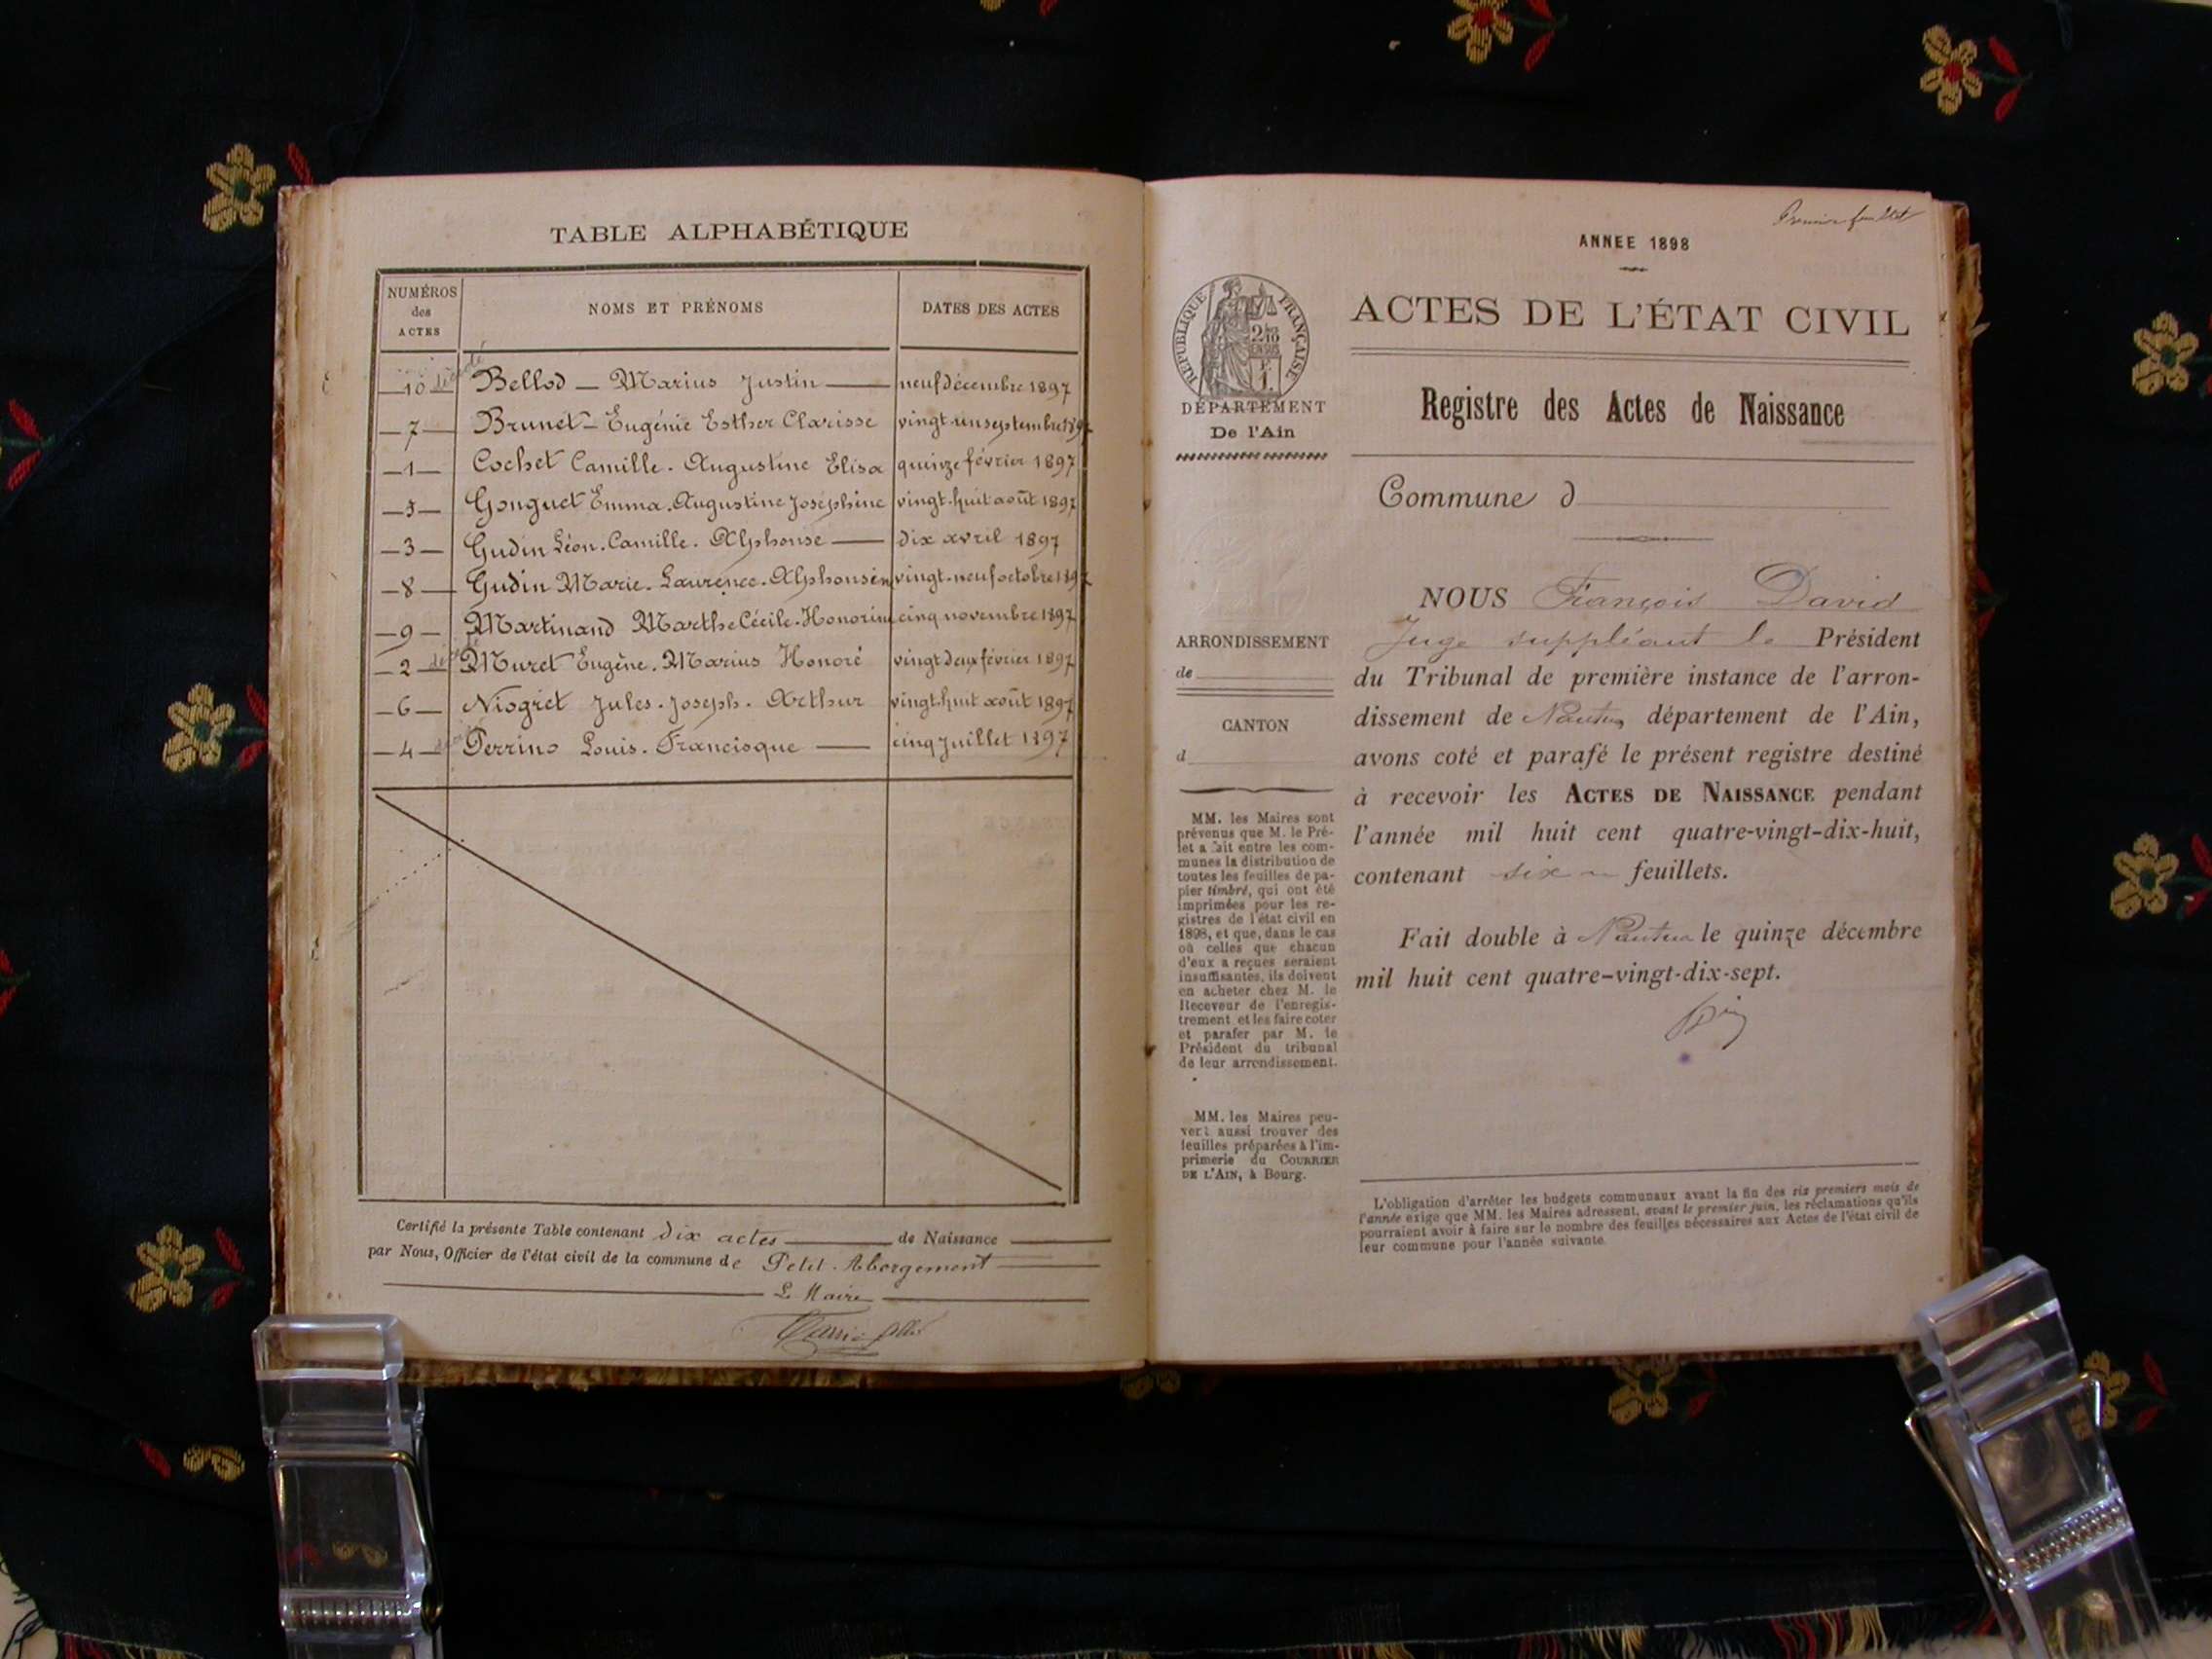 TABLE ALPHABÉTIQUE
NUMÉROS des ACTES
NOMS ET PRÉNOMS
DATES DES ACTES
—10— Bellod — Marius Justin — neuf décembre 1897
—7— Brunet — Eugénie Esther Clarisse vingt-un septembre 1897
—1— Cochet Camille. Augustine Elisa quinze février 1897
—5— Gonguet Emma. Augustine Joséphine vingt-huit août 1897
—3— Gudin Léon. Camille. Alphonse — dix avril 1897
—8— Gudin Marie. Laurence. Alphonsine vingt-neuf octobre 1897
—9— Martinand Marthe Cécile. Honorine cinq novembre 1897
—2— Muret Eugène. Marius Honoré vingt deux février 1897
—6— Niogret Jules. Joseph. Arthur vingt-huit août 1897
—4— Perrino Louis. Francisque — cinq Juillet 1897
Certifié la présente Table contenant dix actes de Naissance
par Nous, Officier de l'état civil de la commune de Petit-Abergement
Le Maire
Premier feuillet
ANNEE 1898
RÉPUBLIQUE FRANÇAISE
ACTES DE L'ÉTAT CIVIL
DÉPARTEMENT
De l'Ain
Registre des Actes de Naissance
Commune d
ARRONDISSEMENT
de
CANTON
d
MM. les Maires sont
prévenus que M. le Pré-
fet a fait entre les com-
munes la distribution de
toutes les feuilles de pa-
pier timbré, qui ont été
imprimées pour les re-
gistres de l'état civil en
1898, et que, dans le cas
où celles que chacun
d'eux a reçues seraient
insuffisantes, ils doivent
en acheter chez M. le
Receveur de l'enregis-
trement et les faire coter
et parafer par M. le
Président du tribunal
de leur arrondissement.
MM. les Maires peu-
vent aussi trouver des
feuilles préparées à l'im-
primerie du COURRIER
DE L'AIN, à Bourg.
NOUS François David
Juge suppléant le Président
du Tribunal de première instance de l'arron-
dissement de Nantua, département de l'Ain,
avons coté et parafé le présent registre destiné
à recevoir les ACTES DE NAISSANCE pendant
l'année mil huit cent quatre-vingt-dix-huit,
contenant six feuillets.
Fait double à Nantua le quinze décembre
mil huit cent quatre-vingt-dix-sept.
L'obligation d'arrêter les budgets communaux avant la fin des six premiers mois de
l'année exige que MM. les Maires adressent, avant le premier juin, les réclamations qu'ils
pourraient avoir à faire sur le nombre des feuilles nécessaires aux Actes de l'état civil de
leur commune pour l'année suivante.